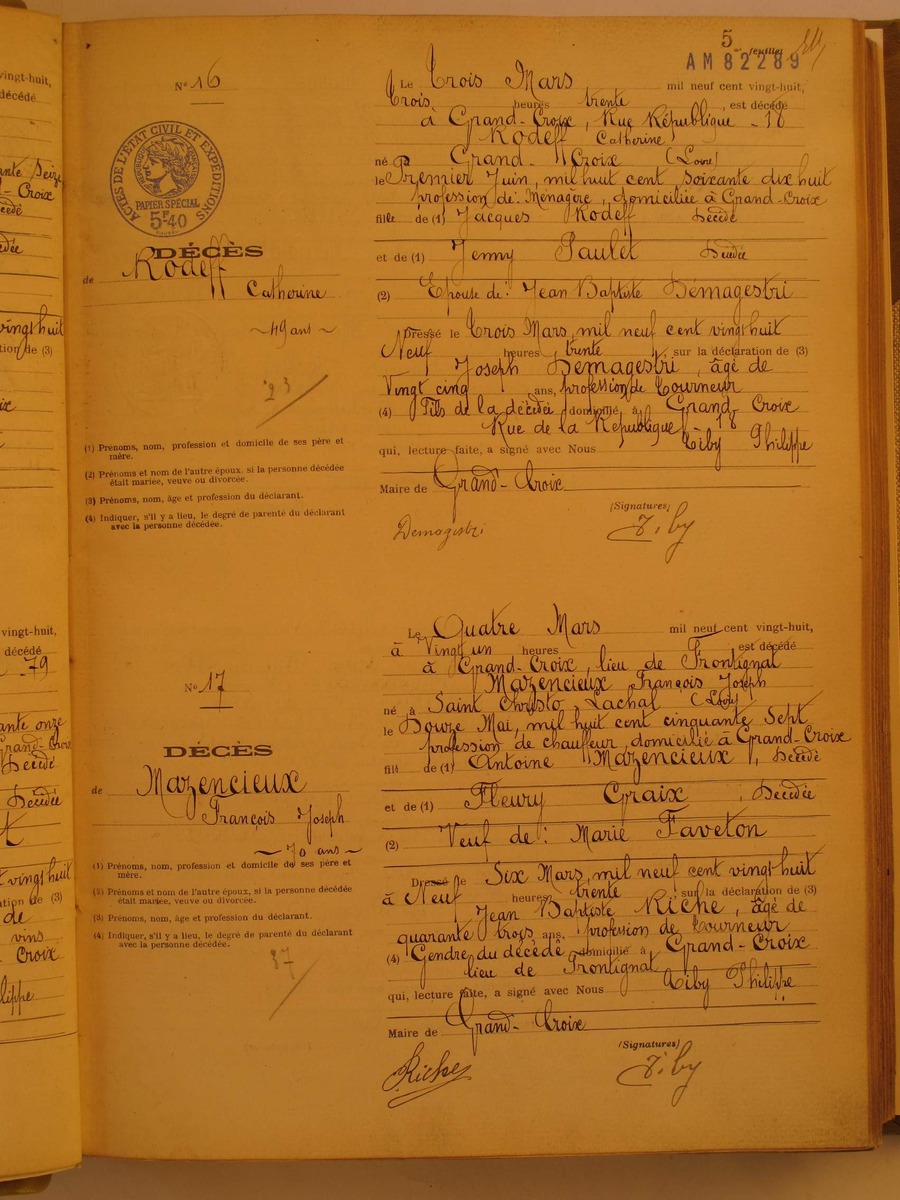 5
feuillet
AM 82289
N° 16
ACTES DE L'ÉTAT CIVIL ET EXPÉDITIONS
PAPIER SPÉCIAL
5F40
DÉCÈS
de Rodeff
Catherine
~ 49 ans ~
23
(1) Prénoms, nom, profession et domicile de ses père et
mère.
(2) Prénoms et nom de l'autre époux, si la personne décédée
était mariée, veuve ou divorcée.
(3) Prénoms, nom, âge et profession du déclarant.
(4) Indiquer, s'il y a lieu, le degré de parenté du déclarant
avec la personne décédée.
Le Trois Mars mil neuf cent vingt-huit,
Trois heures trente, est décédé
à Grand-Croix, Rue République - 18
Rodeff Catherine
né Grand-Croix (Loire)
le Premier Juin, mil huit cent soixante dix huit
profession de Ménagère, domiciliée à Grand-Croix
fille de (1) Jacques Rodeff Décédé
et de (1) Jenny Paulet Décédée
(2) Epouse de: Jean Baptiste Demagestri
Dressé le Trois Mars, mil neuf cent vingt huit
Neuf heures trente, sur la déclaration de (3)
Joseph Demagestri, âgé de
Vingt cinq ans, profession de Tourneur
(4) Fils de la décédée, domicilié à Grand-Croix
Rue de la République 18
qui, lecture faite, a signé avec Nous Tiby Philippe
Maire de Grand-Croix
(Signatures)
Demagestri Tiby
N° 17
DÉCÈS
de Mazencieux
François Joseph
~ 70 ans ~
(1) Prénoms, nom, profession et domicile de ses père et
mère.
(2) Prénoms et nom de l'autre époux, si la personne décédée
était mariée, veuve ou divorcée.
(3) Prénoms, nom, âge et profession du déclarant.
(4) Indiquer, s'il y a lieu, le degré de parenté du déclarant
avec la personne décédée.
37
Le Quatre Mars mil neuf cent vingt-huit,
à Vingt un heures est décédé
à Grand-Croix, lieu de Frontignat
Mazencieux François Joseph
né à Saint Christo Lachal (Loire)
le Douze Mai, mil huit cent cinquante sept
profession de chauffeur, domicilié à Grand-Croix
fils de (1) Antoine Mazencieux, Décédé
et de (1) Fleury Graix, Décédée
(2) Veuf de: Marie Faveton
Dressé le Six Mars, mil neuf cent vingt-huit
à Neuf heures trente, sur la déclaration de (3)
Jean Baptiste Riche, âgé de
quarante trois ans, profession de Tourneur
(4) Gendre du décédé domicilié à Grand-Croix
lieu de Frontignat
qui, lecture faite, a signé avec Nous Tiby Philippe
Maire de Grand-Croix
(Signatures)
Riche Tiby